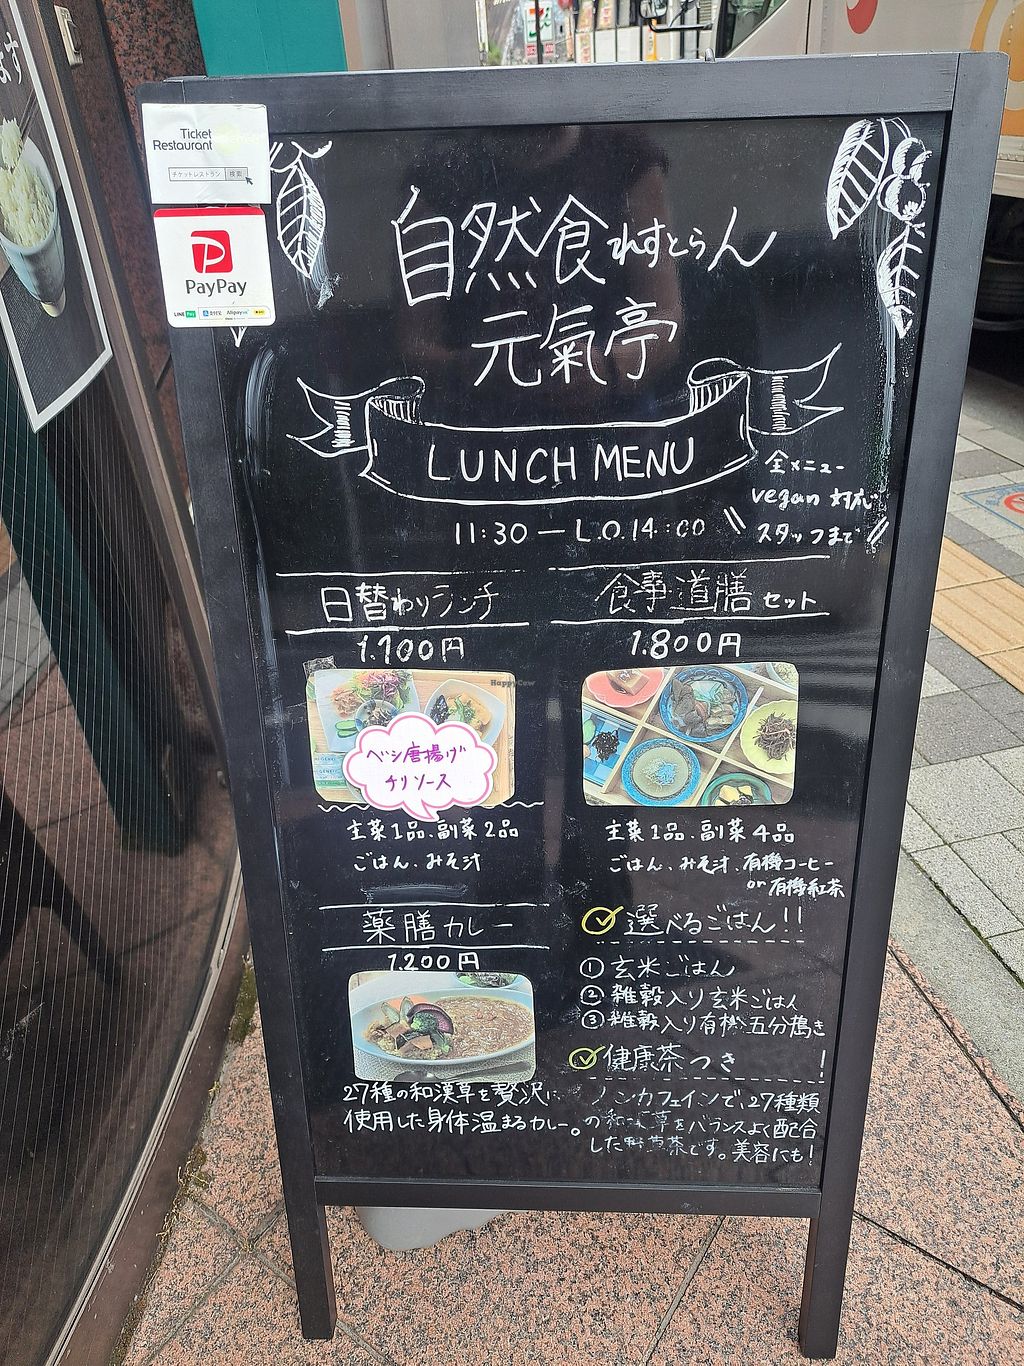 ます
Ticket
Restaurant
チケットレストラン 検索
PayPay
LINE Pay 支付宝 Alipay
自然食れすとらん
元氣亭
LUNCH MENU
全メニュー
vegan 対応
スタッフまで
11:30 — L.O.14:00
日替わりランチ
1.100円
HappyCow
ベジ唐揚げ
チリソース
主菜1品、副菜2品
ごはん、みそ汁
食事道膳セット
1.800円
主菜1品、副菜4品
ごはん、みそ汁、有機コーヒー
or 有機紅茶
薬膳カレー
1.200円
27種の和漢草を贅沢に
使用した身体温まるカレー。
選べるごはん!!
① 玄米ごはん
② 雑穀入り玄米ごはん
③ 雑穀入り有機五分搗き
健康茶つき!
ノンカフェインで、27種類
の和漢草をバランスよく配合
した野草茶です。美容にも!